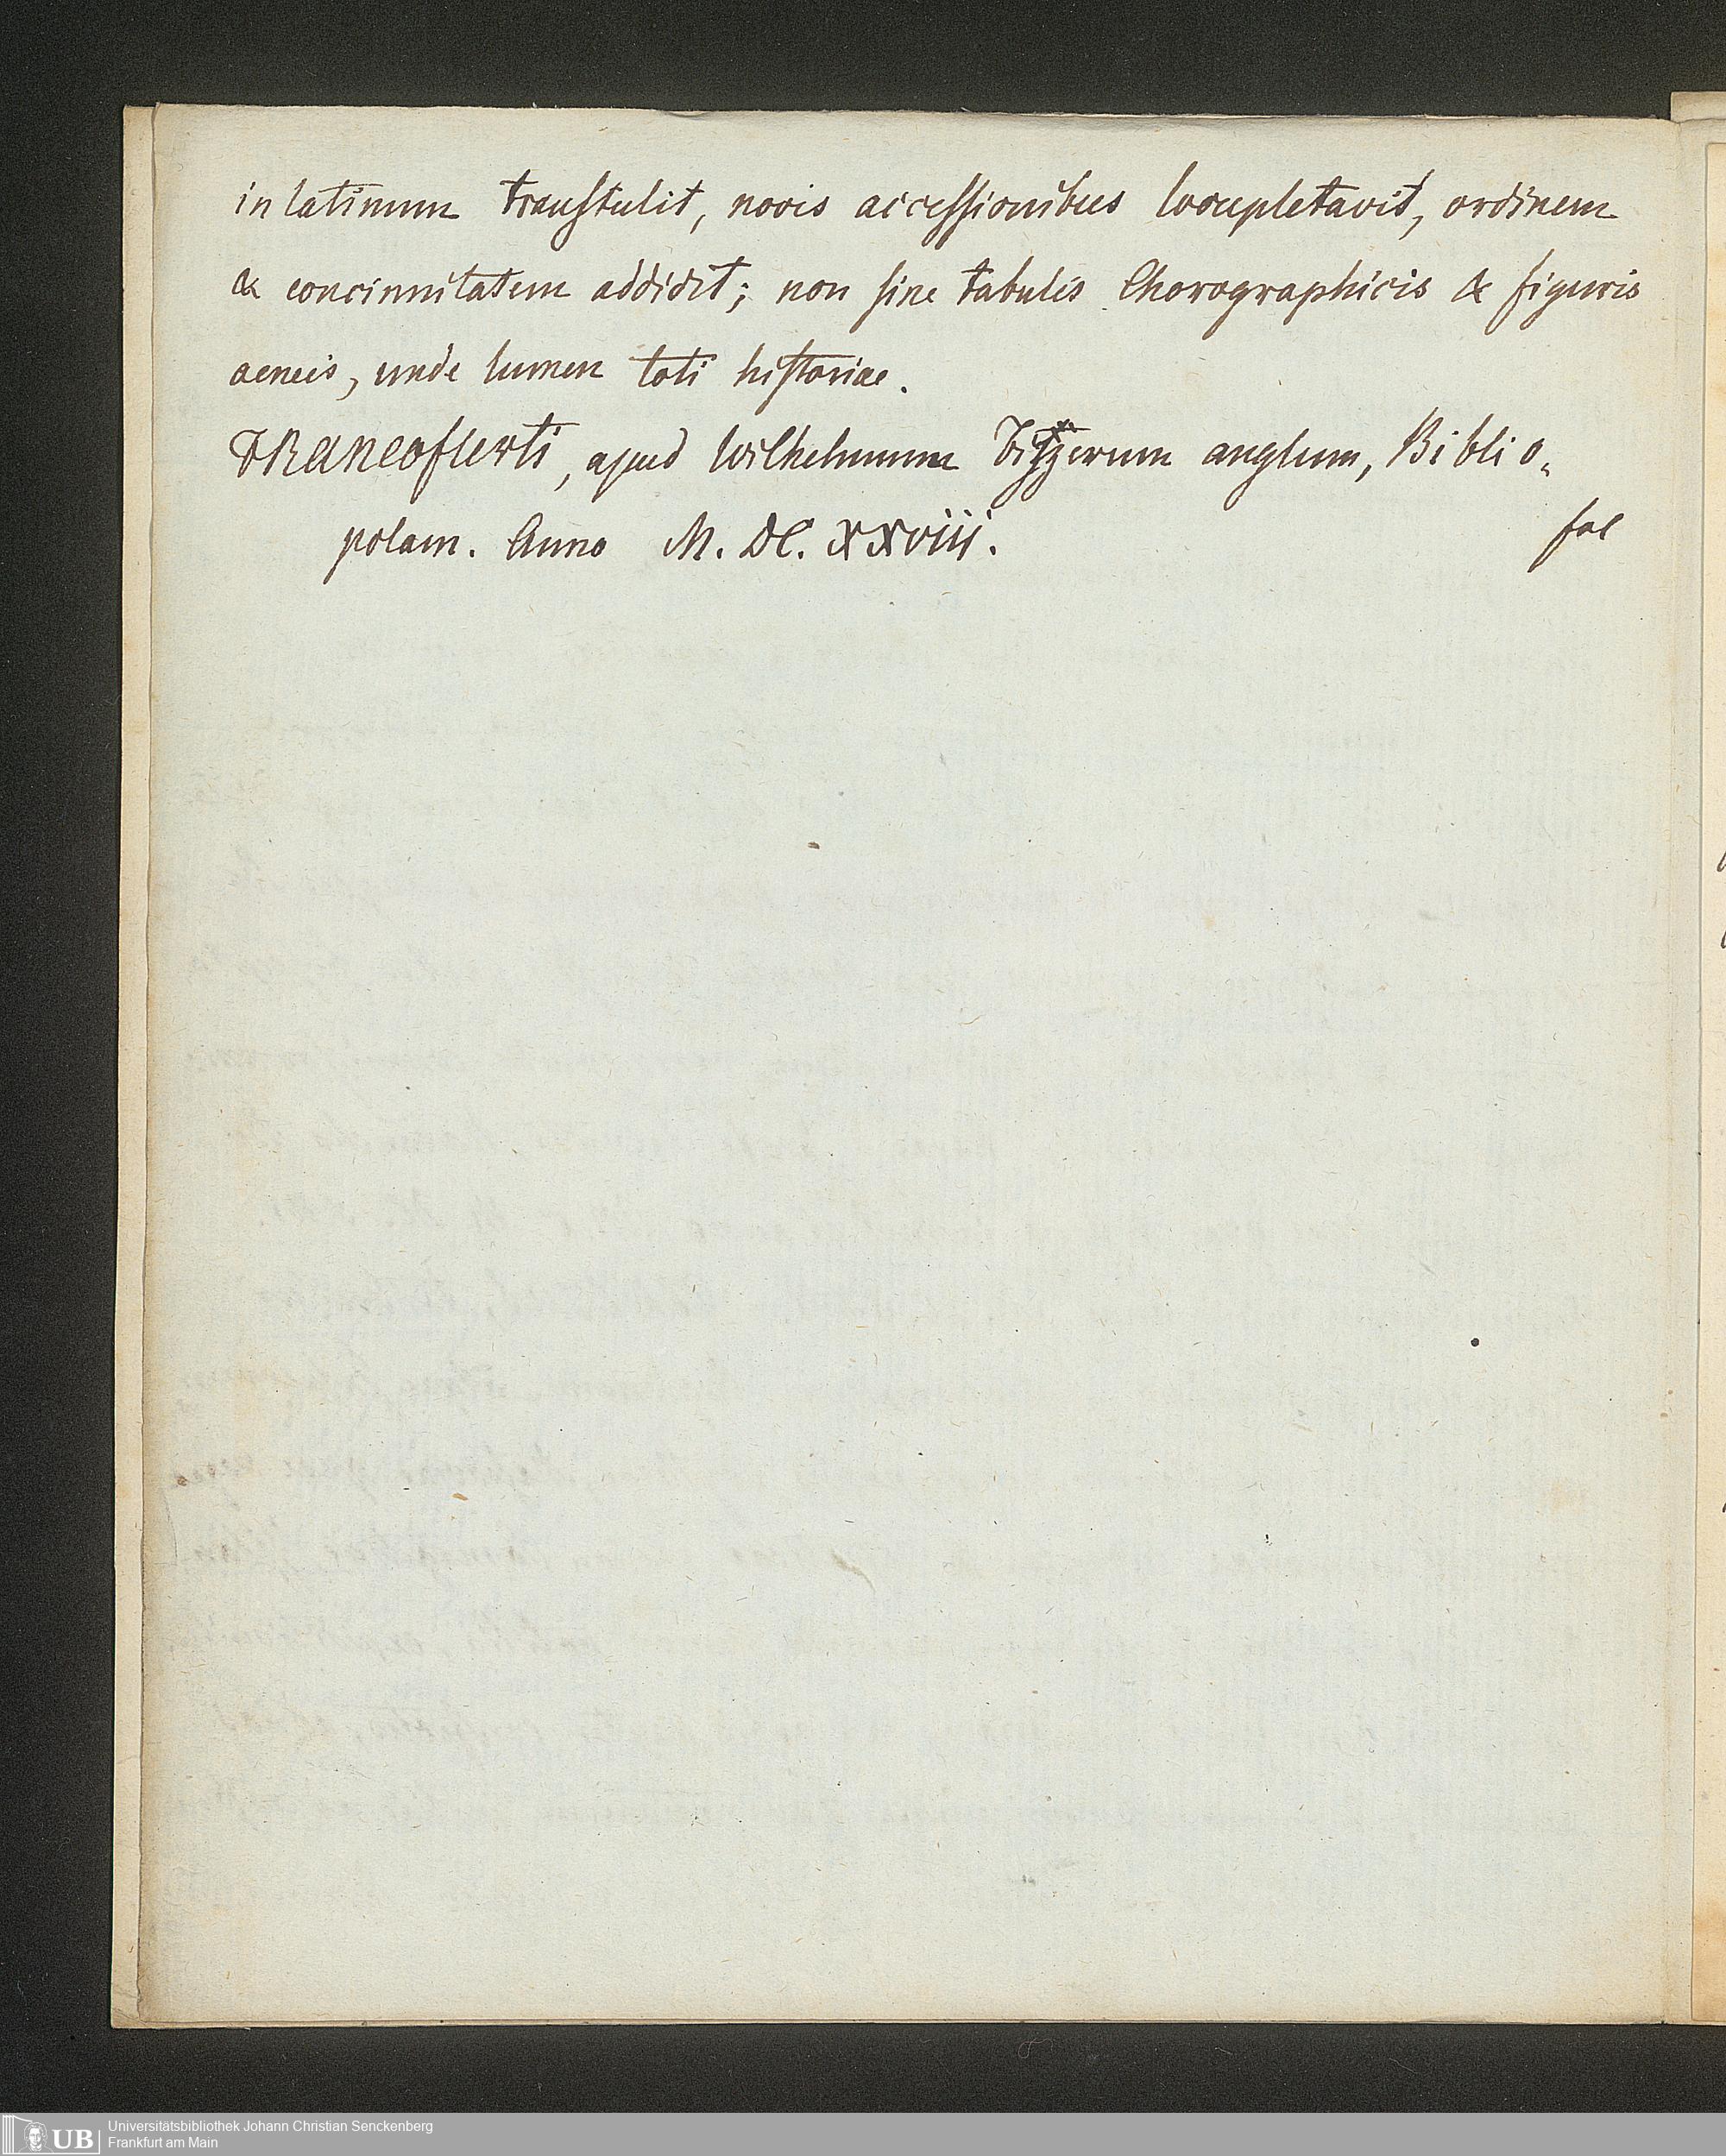 in latinum tranſtulit, novis acceſſionibus locupletavit, ordinem
& concinnitatem addidit; non ſine tabulis Chorographicis & figuris
aeneis, unde lumen toti hiſtoriae.
FRancofurti, apud Wilhelmum anglum, Biblio„
polam. Anno M. DC. XXviii. fol
Universitätsbibliothek Johann Christian Senckenberg
Frankfurt am Main
UB